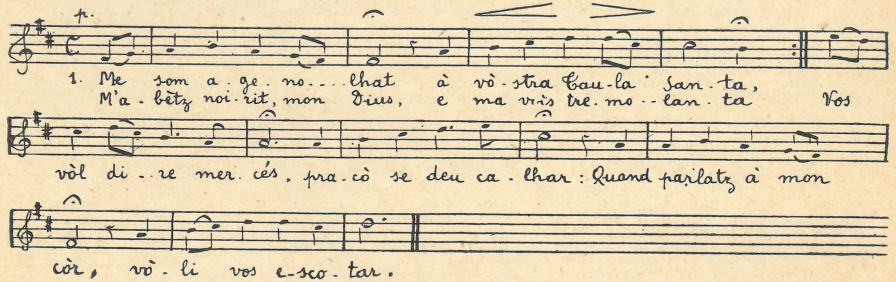 p.
1. Me som a-ge-no---lhat à vò-stra Tau-la San-ta,
M'a-bètz noi-rit, mon Dius, e ma vris tre-mo--lan-ta Vos
vòl di--re mer-cés, pra-cò se deu ca-lhar: Quand parlatz à mon
còr, vò-li vos e-sco-tar.